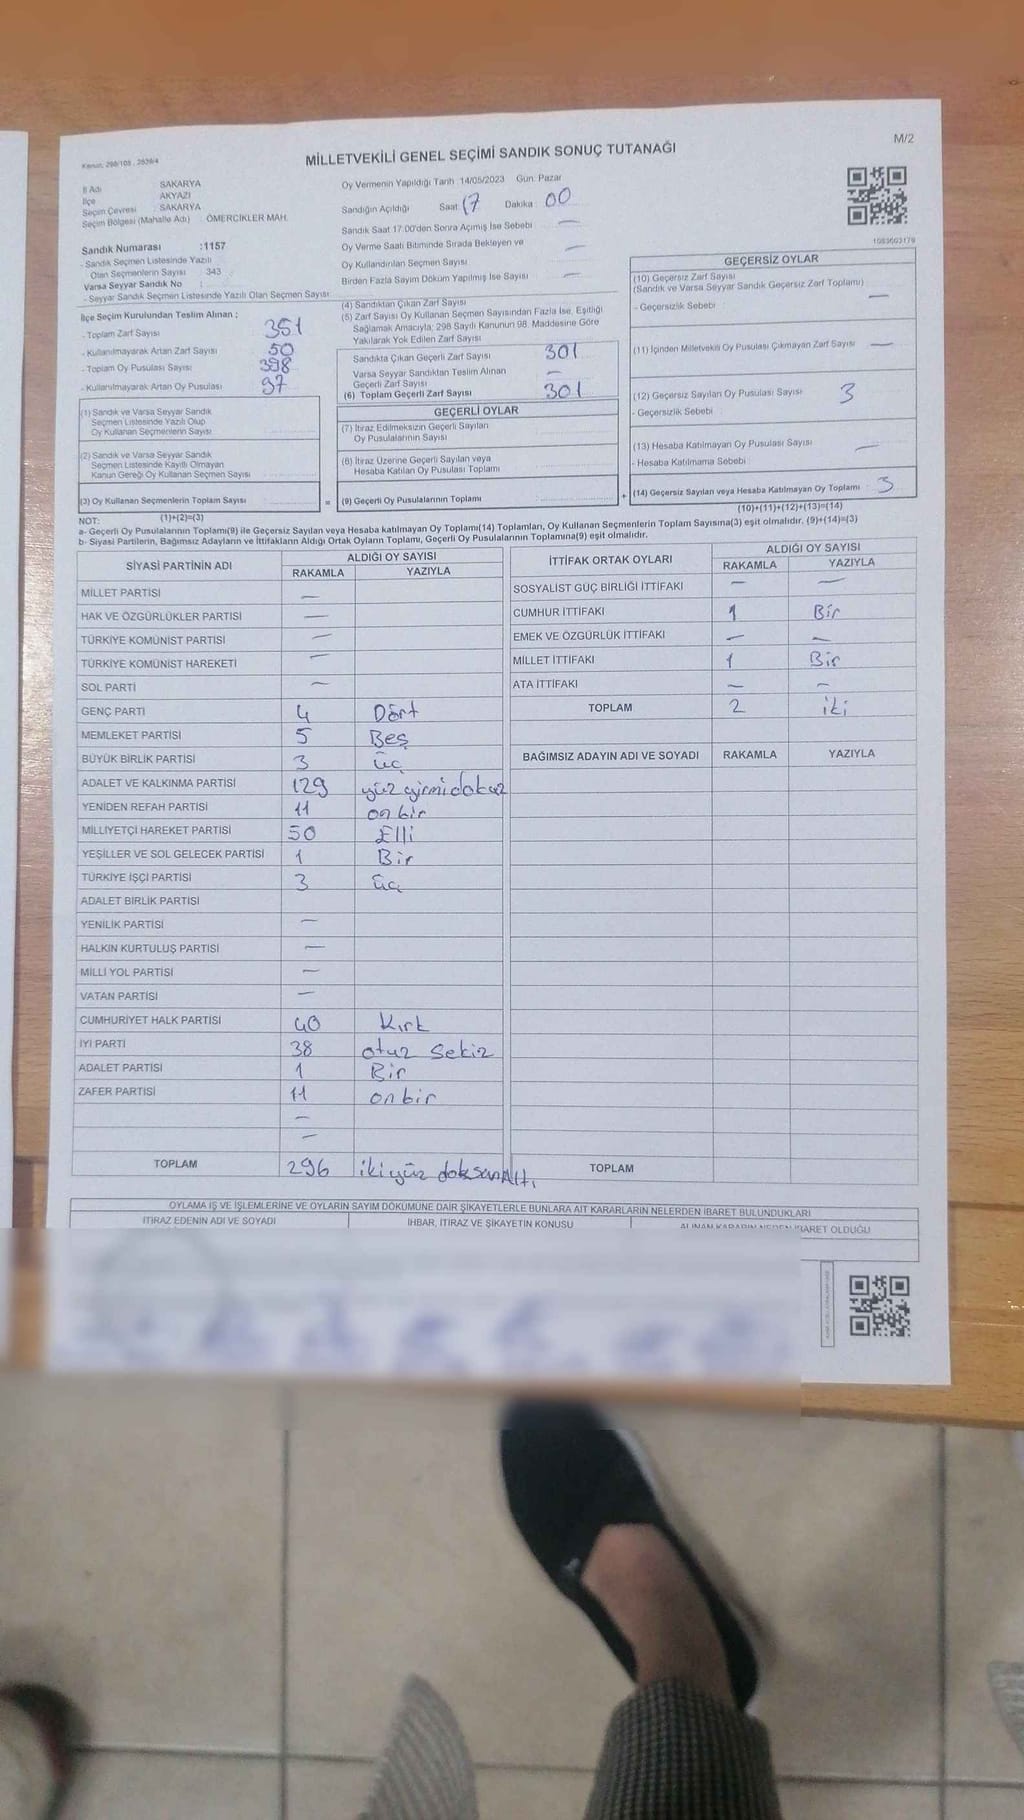 Kanun: 298/105 , 2839/4
MİLLETVEKİLİ GENEL SEÇİMİ SANDIK SONUÇ TUTANAĞI
M/2
İl Adı : SAKARYA
İlçe : AKYAZI
Seçim Çevresi : SAKARYA
Seçim Bölgesi (Mahalle Adı) : ÖMERCİKLER MAH.
Sandık Numarası :1157
- Sandık Seçmen Listesinde Yazılı
Olan Seçmenlerin Sayısı : 343
Varsa Seyyar Sandık No :
- Seyyar Sandık Seçmen Listesinde Yazılı Olan Seçmen Sayısı
Oy Vermenin Yapıldığı Tarih :14/05/2023 Gün: Pazar
Sandığın Açıldığı Saat: 17 Dakika : 00
Sandık Saat 17:00'den Sonra Açılmış İse Sebebi : —
Oy Verme Saati Bitiminde Sırada Bekleyen ve
Oy Kullandırılan Seçmen Sayısı : —
Birden Fazla Sayım Döküm Yapılmış İse Sayısı : —
1083603179
İlçe Seçim Kurulundan Teslim Alınan ;
- Toplam Zarf Sayısı : 351
- Kullanılmayarak Artan Zarf Sayısı : 50
- Toplam Oy Pusulası Sayısı : 398
- Kullanılmayarak Artan Oy Pusulası : 97
(1) Sandık ve Varsa Seyyar Sandık
Seçmen Listesinde Yazılı Olup
Oy Kullanan Seçmenlerin Sayısı :
(2) Sandık ve Varsa Seyyar Sandık
Seçmen Listesinde Kayıtlı Olmayan
Kanun Gereği Oy Kullanan Seçmen Sayısı :
(3) Oy Kullanan Seçmenlerin Toplam Sayısı :
(1)+(2)=(3)
(4) Sandıktan Çıkan Zarf Sayısı :
(5) Zarf Sayısı Oy Kullanan Seçmen Sayısından Fazla İse, Eşitliği
Sağlamak Amacıyla; 298 Sayılı Kanunun 98. Maddesine Göre
Yakılarak Yok Edilen Zarf Sayısı :
Sandıkta Çıkan Geçerli Zarf Sayısı : 301
Varsa Seyyar Sandıktan Teslim Alınan
Geçerli Zarf Sayısı : —
(6) Toplam Geçerli Zarf Sayısı : 301
GEÇERLİ OYLAR
(7) İtiraz Edilmeksizin Geçerli Sayılan
Oy Pusulalarının Sayısı :
(8) İtiraz Üzerine Geçerli Sayılan veya
Hesaba Katılan Oy Pusulası Toplamı :
= (9) Geçerli Oy Pusulalarının Toplamı :
GEÇERSİZ OYLAR
(10) Geçersiz Zarf Sayısı
(Sandık ve Varsa Seyyar Sandık Geçersiz Zarf Toplamı) : —
- Geçersizlik Sebebi :
(11) İçinden Milletvekili Oy Pusulası Çıkmayan Zarf Sayısı : —
(12) Geçersiz Sayılan Oy Pusulası Sayısı : 3
- Geçersizlik Sebebi :
(13) Hesaba Katılmayan Oy Pusulası Sayısı : —
- Hesaba Katılmama Sebebi :
+ (14) Geçersiz Sayılan veya Hesaba Katılmayan Oy Toplamı : 3
(10)+(11)+(12)+(13)=(14)
NOT:
a- Geçerli Oy Pusulalarının Toplamı(9) ile Geçersiz Sayılan veya Hesaba katılmayan Oy Toplamı(14) Toplamları, Oy Kullanan Seçmenlerin Toplam Sayısına(3) eşit olmalıdır. (9)+(14)=(3)
b- Siyasi Partilerin, Bağımsız Adayların ve İttifakların Aldığı Ortak Oyların Toplamı, Geçerli Oy Pusulalarının Toplamına(9) eşit olmalıdır.
SİYASİ PARTİNİN ADI ALDIĞI OY SAYISI
RAKAMLA YAZIYLA
MİLLET PARTİSİ —
HAK VE ÖZGÜRLÜKLER PARTİSİ —
TÜRKİYE KOMÜNİST PARTİSİ —
TÜRKİYE KOMÜNİST HAREKETİ —
SOL PARTİ —
GENÇ PARTİ 4 Dört
MEMLEKET PARTİSİ 5 Beş
BÜYÜK BİRLİK PARTİSİ 3 üç
ADALET VE KALKINMA PARTİSİ 129 yüz yirmidokuz
YENİDEN REFAH PARTİSİ 11 on bir
MİLLİYETÇİ HAREKET PARTİSİ 50 Elli
YEŞİLLER VE SOL GELECEK PARTİSİ 1 Bir
TÜRKİYE İŞÇİ PARTİSİ 3 üç
ADALET BİRLİK PARTİSİ
YENİLİK PARTİSİ —
HALKIN KURTULUŞ PARTİSİ —
MİLLİ YOL PARTİSİ —
VATAN PARTİSİ —
CUMHURİYET HALK PARTİSİ 40 Kırk
İYİ PARTİ 38 otuz sekiz
ADALET PARTİSİ 1 Bir
ZAFER PARTİSİ 11 on bir
—
—
TOPLAM 296 ikiyüz doksanAltı
İTTİFAK ORTAK OYLARI ALDIĞI OY SAYISI
RAKAMLA YAZIYLA
SOSYALİST GÜÇ BİRLİĞİ İTTİFAKI — —
CUMHUR İTTİFAKI 1 Bir
EMEK VE ÖZGÜRLÜK İTTİFAKI — —
MİLLET İTTİFAKI 1 Bir
ATA İTTİFAKI — —
TOPLAM 2 iki
BAĞIMSIZ ADAYIN ADI VE SOYADI RAKAMLA YAZIYLA
TOPLAM
OYLAMA İŞ VE İŞLEMLERİNE VE OYLARIN SAYIM DÖKÜMÜNE DAİR ŞİKAYETLERLE BUNLARA AİT KARARLARIN NELERDEN İBARET BULUNDUKLARI
İTİRAZ EDENİN ADI VE SOYADI İHBAR, İTİRAZ VE ŞİKAYETİN KONUSU ALINAN KARARIN NEDEN İBARET OLDUĞU